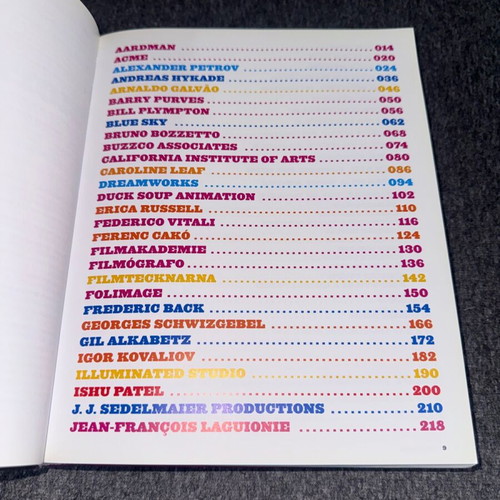 AARDMAN ........................................ 014
ACME ........................................ 020
ALEXANDER PETROV ........................................ 024
ANDREAS HYKADE ........................................ 036
ARNALDO GALVÃO ........................................ 046
BARRY PURVES ........................................ 050
BILL PLYMPTON ........................................ 056
BLUE SKY ........................................ 062
BRUNO BOZZETTO ........................................ 068
BUZZCO ASSOCIATES ........................................ 074
CALIFORNIA INSTITUTE OF ARTS .................... 080
CAROLINE LEAF ........................................ 086
DREAMWORKS ........................................ 094
DUCK SOUP ANIMATION .............................. 102
ERICA RUSSELL ........................................ 110
FEDERICO VITALI ........................................ 116
FERENC CAKÓ ........................................ 124
FILMAKADEMIE ........................................ 130
FILMÓGRAFO ........................................ 136
FILMTECKNARNA ........................................ 142
FOLIMAGE ........................................ 150
FREDERIC BACK ........................................ 154
GEORGES SCHWIZGEBEL .............................. 166
GIL ALKABETZ ........................................ 172
IGOR KOVALIOV ........................................ 182
ILLUMINATED STUDIO .............................. 190
ISHU PATEL ........................................ 200
J. J. SEDELMAIER PRODUCTIONS ................ 210
JEAN-FRANÇOIS LAGUIONIE .................... 218
9